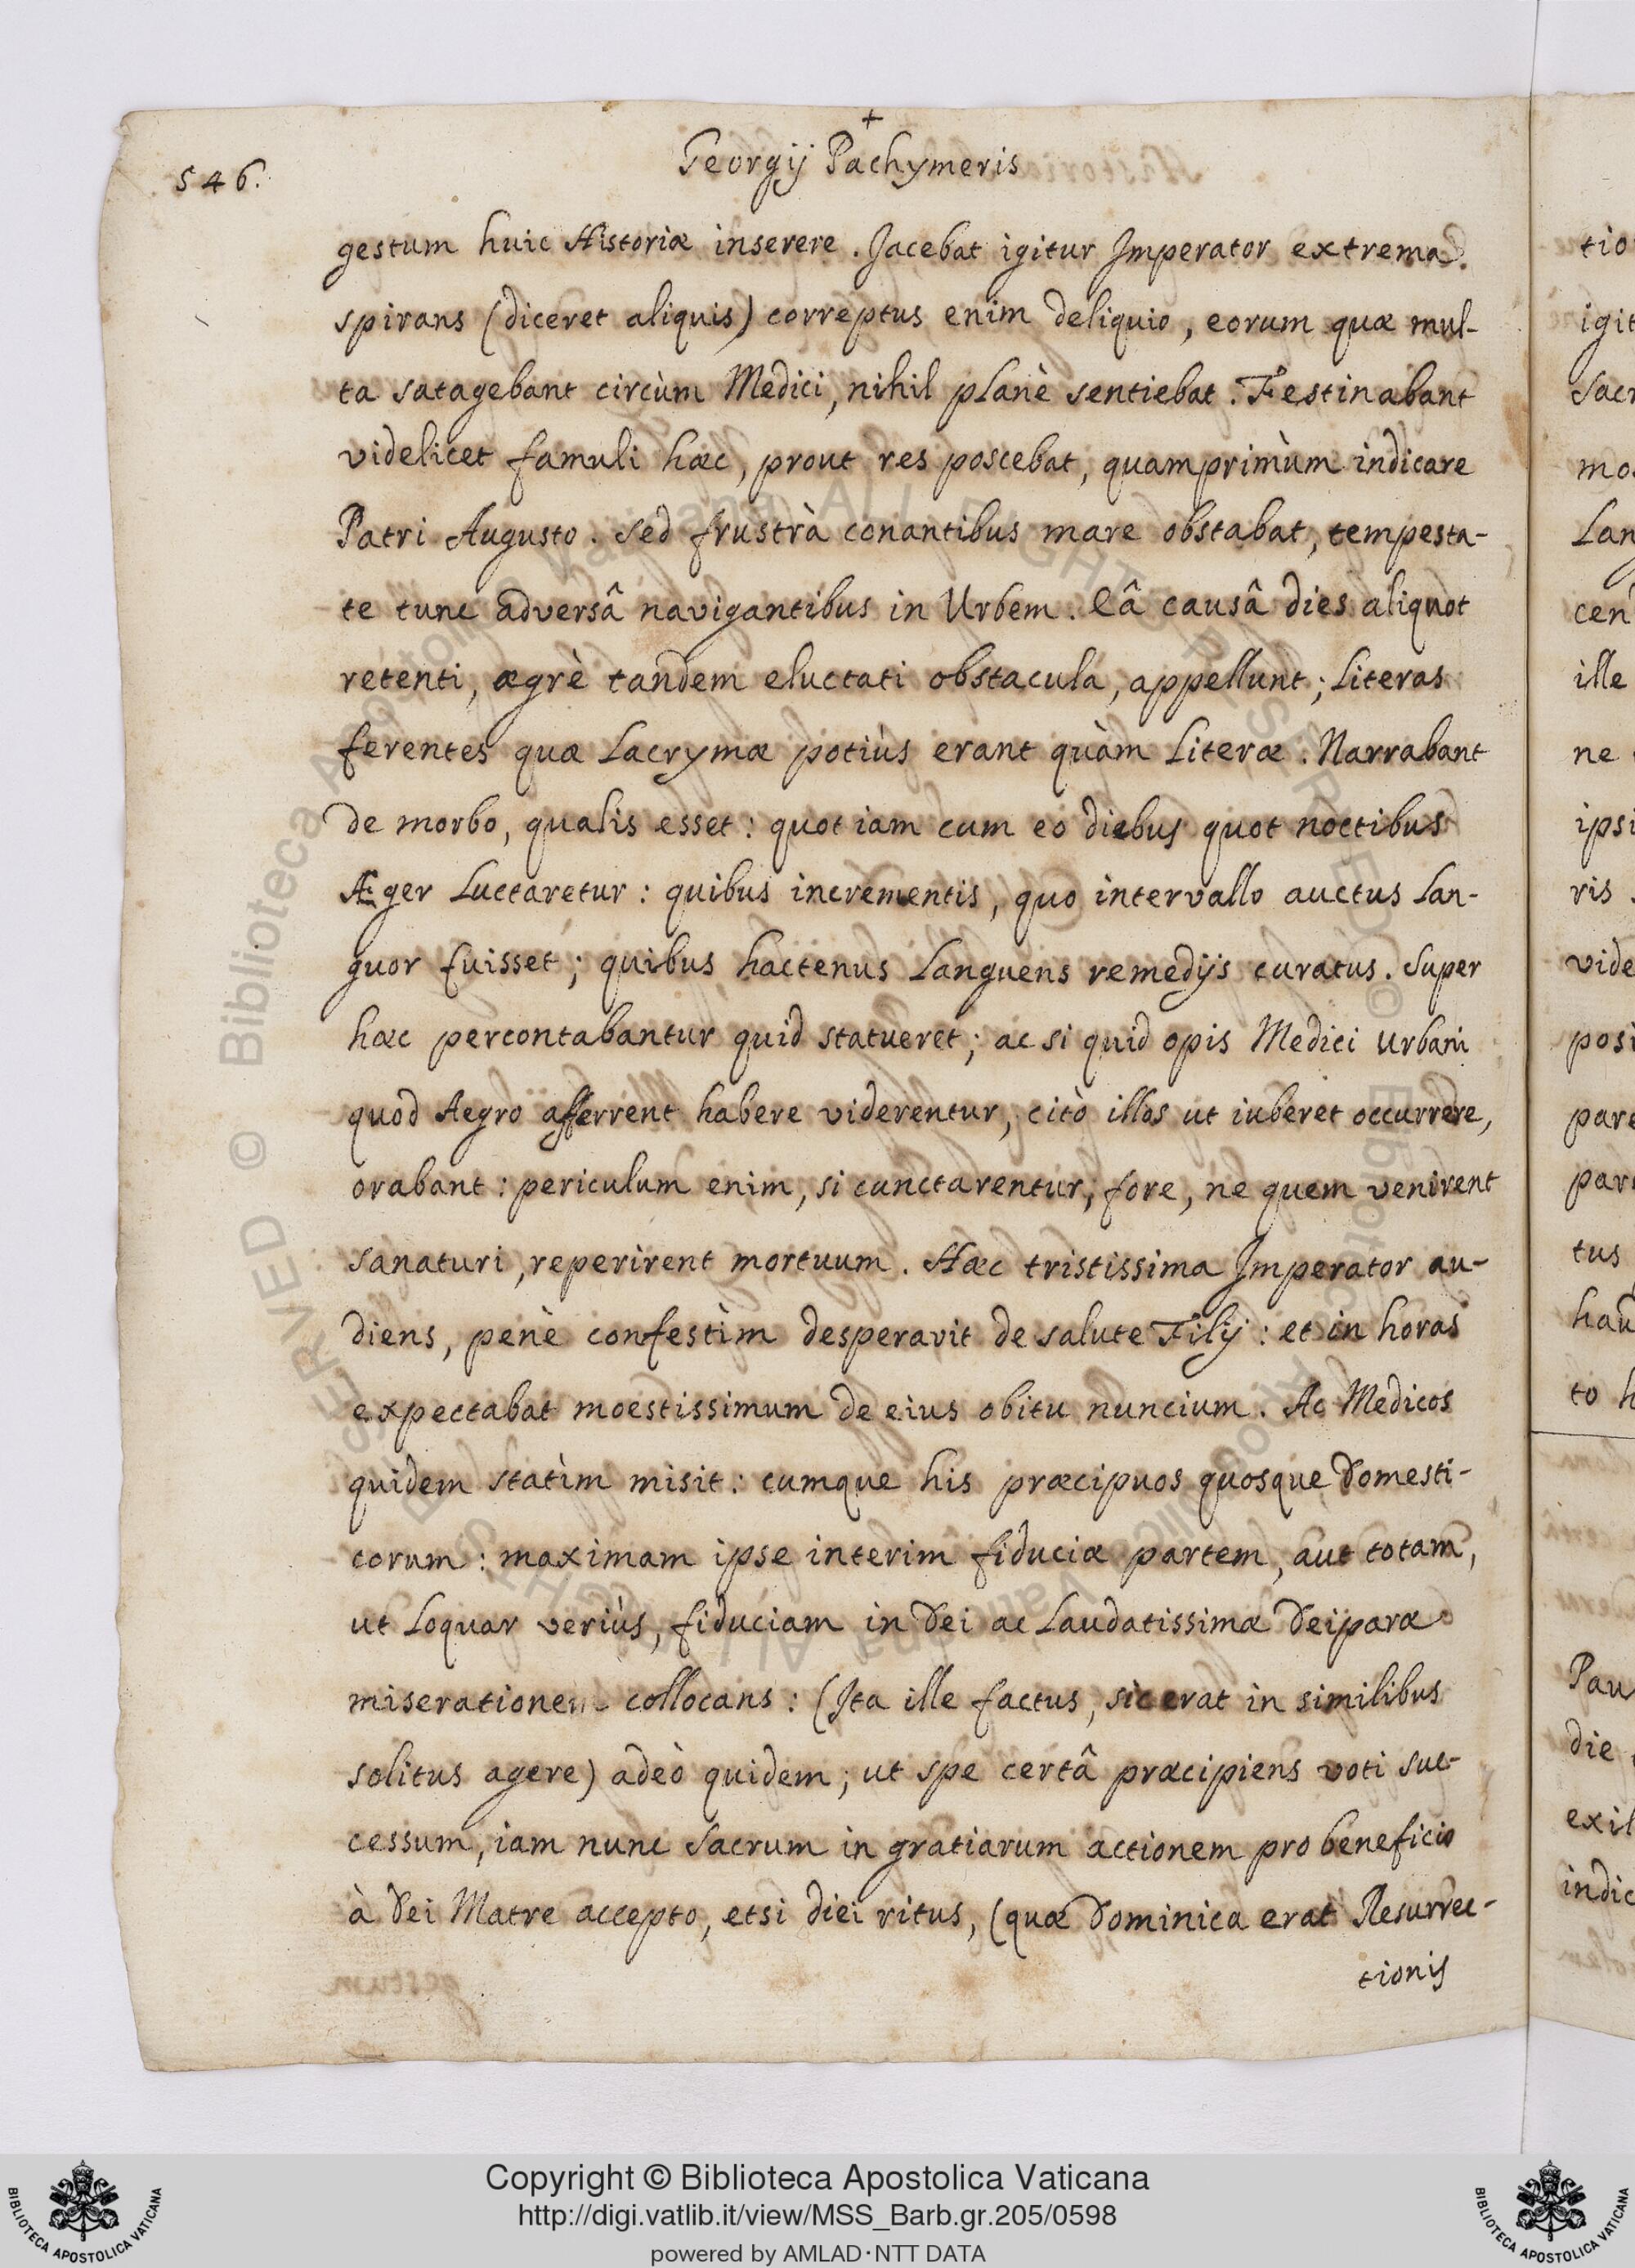 +
546.
Georgij Pachymeris
gestum huic Historiæ inserere. Jacebat igitur Imperator extrema
spirans (diceret aliquis) correptus enim deliquio, eorum quæ mul-
ta satagebant circùm Medici, nihil planè sentiebat. Festinabant
videlicet famuli hæc, prout res poscebat, quamprimùm indicare
Patri Augusto. Sed frustrà conantibus mare obstabat, tempesta-
te tunc adversâ navigantibus in Urbem. Eâ causâ dies aliquot
retenti, ægrè tandem eluctati obstacula, appellunt; Literas
ferentes quæ Lacrymæ potiùs erant quàm Literæ. Narrabant
de morbo, qualis esset: quot iam cum eo diebus quot noctibus
Æger Luctaretur: quibus incrementis, quo intervallo auctus Lan-
guor fuisset; quibus hactenus Languens remedijs curatus. Super
hæc percontabantur quid statueret; ac si quid opis Medici Urbani
quod Aegro afferrent habere viderentur, citò illos ut iuberet occurrere,
orabant: periculum enim, si cunctarentur, fore, ne quem venirent
sanaturi, reperirent mortuum. Hæc tristissima Imperator au-
diens, penè confestìm desperavit de salute Filij: et in horas
expectabat moestissimum de eius obitu nuncium. Ac Medicos
quidem statìm misit: cumque his præcipuos quosque Domesti-
corum: maximam ipse interim fiduciæ partem, aut totam,
ut Loquar veriùs, fiduciam in Dei ac Laudatissimæ Deiparæ
miserationem collocans: (Ita ille factus, sic erat in similibus
solitus agere) adeò quidem; ut spe certâ præcipiens voti suc-
cessum, iam nunc Sacrum in gratiarum actionem pro beneficio
à Dei Matre accepto, etsi diei ritus, (quæ Dominica erat Resurrec-
tionis
tio
igit
Sacr
mo
Lan
cen
ille
ne
ipsi
ris
vide
posi
pare
par
tus
hau
to h
Pau
die
exil
indic
© Biblioteca Apostolica Vaticana ALL RIGHTS RESERVED © Biblioteca Apostolica Vaticana ALL RIGHTS RESERVED
Copyright © Biblioteca Apostolica Vaticana
http://digi.vatlib.it/view/MSS_Barb.gr.205/0598
powered by AMLAD·NTT DATA
BIBLIOTECA APOSTOLICA VATICANA
BIBLIOTECA APOSTOLICA VATICANA